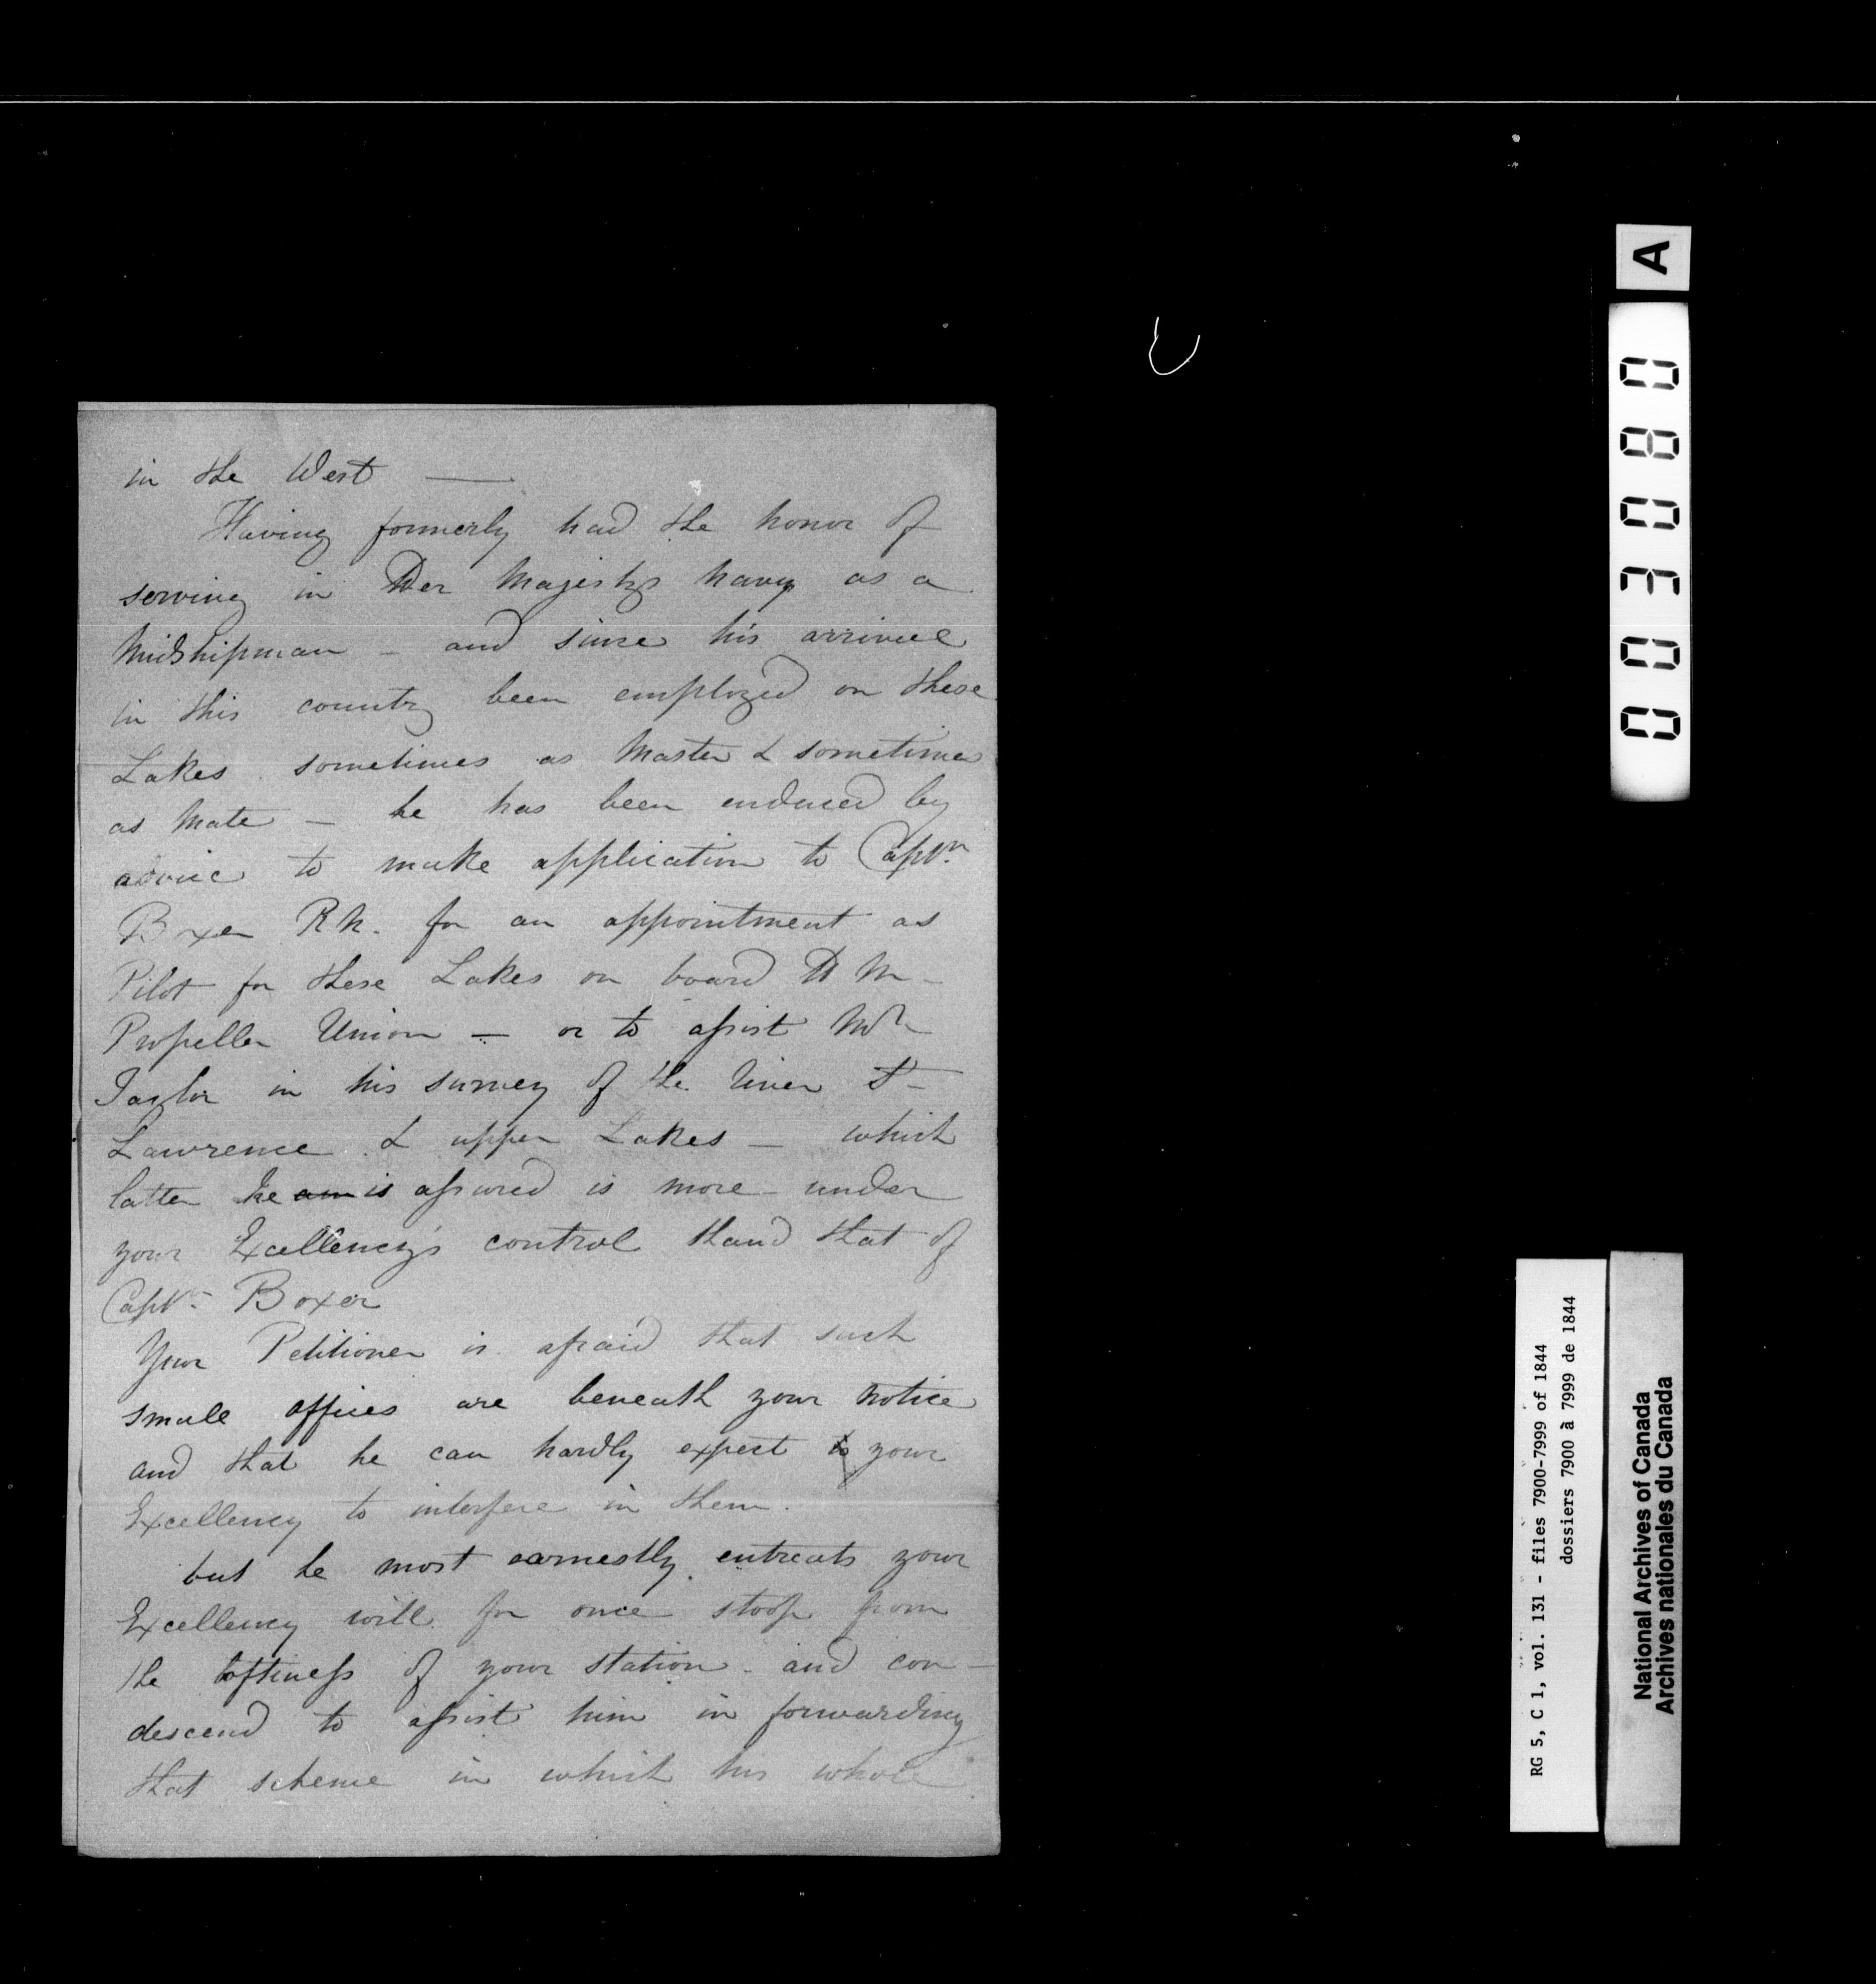 in the West —
Having formerly had the honor of
serving in Her Majestys navy as a
Midshipman - and since his arrival
in this country been employed on these
Lakes sometimes as Master & sometimes
as Mate — he has been enduced by
advice to make application to Captn.
Boxer RN. for an appointment as
Pilot for these Lakes on board H M -
Propeller Union — or to assist Mr
Taylor in his survey of the River St
Lawrence & upper Lakes — which
latter he am is assured is more under
your Excellency's control thand that of
Captn. Boxer
Your Petitioner is afraid that such
small offices are beneath your notice
and that he can hardly expect your
Excellency to interfere in them.
but he most earnestly entreats your
Excellency will for once stoop from
the loftiness of your station - and con-
descend to assist him in forwarding
that scheme in which his whole
A
003080
RG 5, C 1, vol. 131 - files 7900-7999 of 1844
dossiers 7900 à 7999 de 1844
National Archives of Canada
Archives nationales du Canada